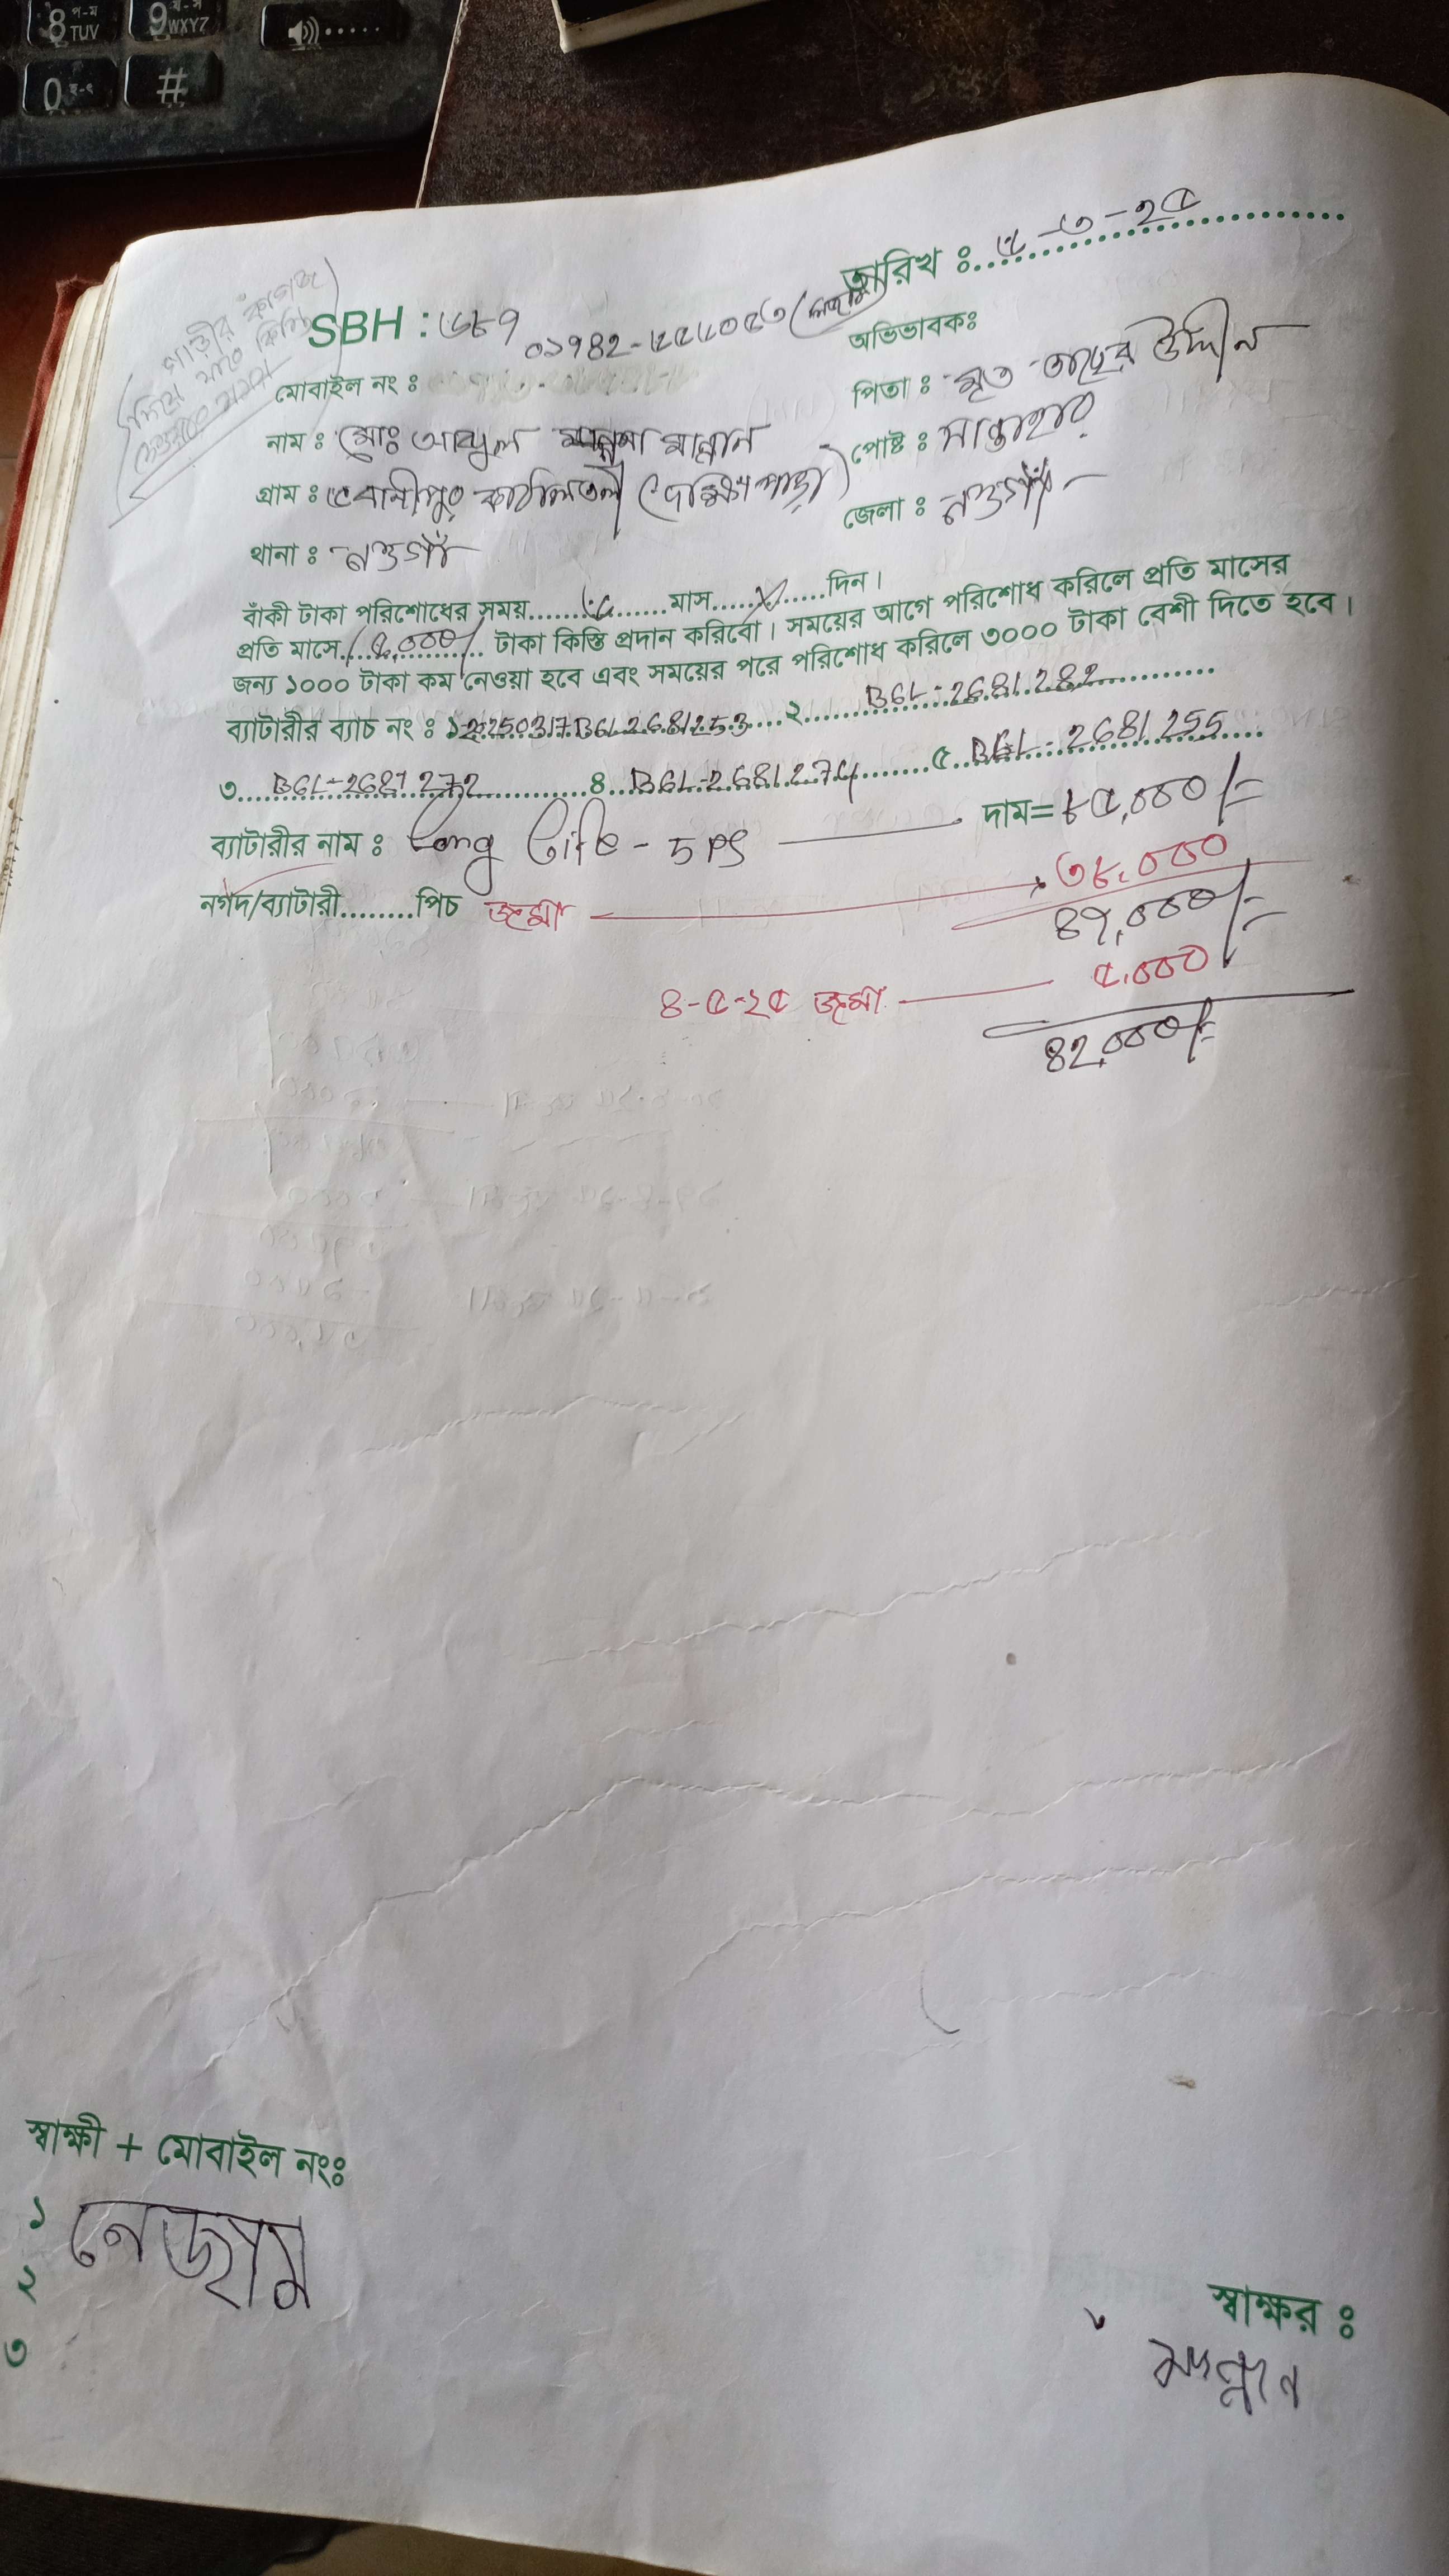 8 প-ম TUV 9 য-স WXYZ
0 হ-ৎ #
তারিখ ঃ ৫-৩-২৫
গাড়ীর কাগজ
দিয়ে যাবে কিস্তি
দেওয়ার সময়
SBH : ৬৮৭ ০১৭৪২-৫৫১০৫৩
অভিভাবকঃ
মোবাইল নং ঃ
পিতা ঃ মৃত তাহের উদ্দীন
নাম ঃ মোঃ আব্দুল মান্নান
পোষ্ট ঃ সান্তাহার
গ্রাম ঃ কাঠালতলী (দক্ষিণ পাড়া)
জেলা ঃ নওগাঁ
থানা ঃ নওগাঁ
বাঁকী টাকা পরিশোধের সময়.......৫.......মাস.....X......দিন।
প্রতি মাসে (৫,০০০/ টাকা কিস্তি প্রদান করিবো। সময়ের আগে পরিশোধ করিলে প্রতি মাসের
জন্য ১০০০ টাকা কম নেওয়া হবে এবং সময়ের পরে পরিশোধ করিলে ৩০০০ টাকা বেশী দিতে হবে।
ব্যাটারীর ব্যাচ নং ঃ ১ 2250317BGL2681253 ২ BGL-2681282
৩ BGL-2681272 ৪ BGL-2681274 ৫ BGL-2681255
ব্যাটারীর নাম ঃ Long Life - 5 PS দাম= ৮৫,০০০/=
নগদ/ব্যাটারী........পিচ জমা ৩৮,০০০
৪৭,০০০/=
৪-৫-২৫ জমা ৫,০০০
৪২,০০০/=
স্বাক্ষী + মোবাইল নংঃ
১ নেজাম
২
৩
স্বাক্ষর ঃ
মান্নান